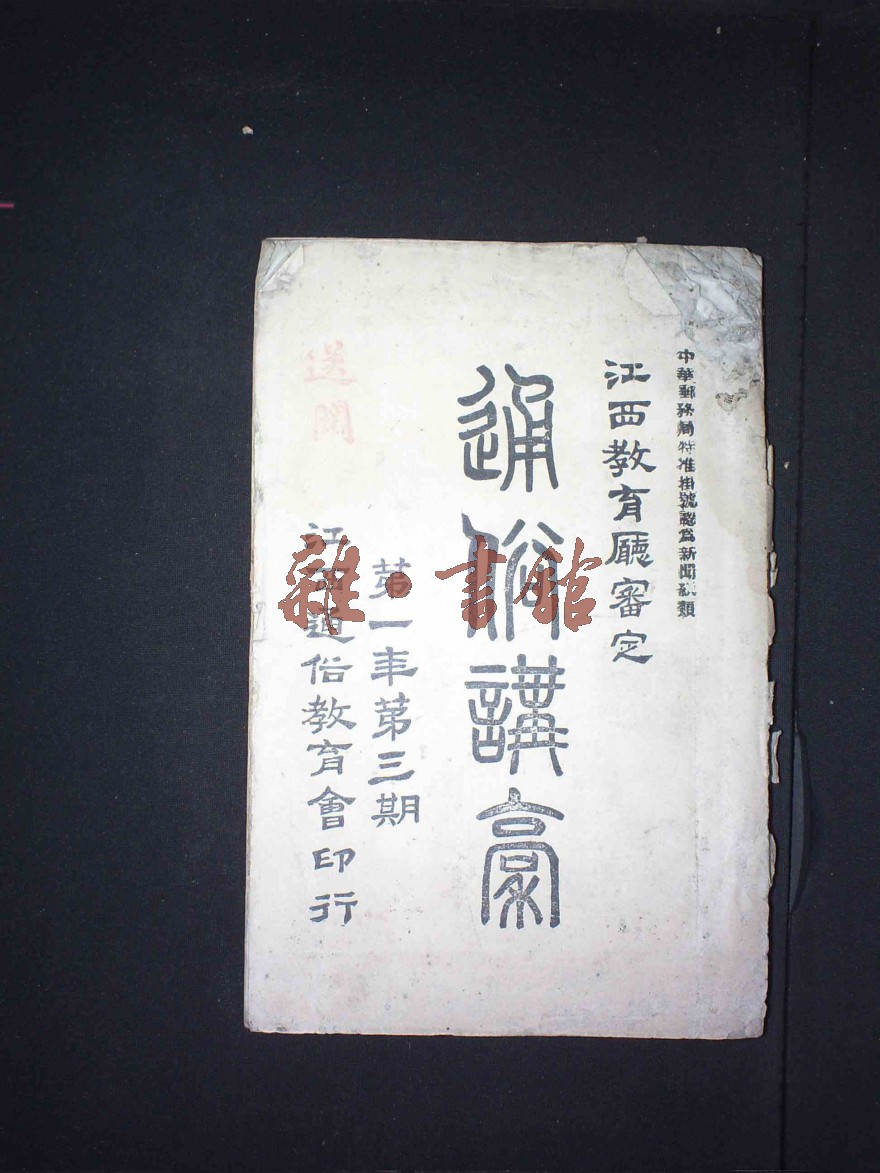 中華郵務局特准掛號認為新聞紙類
江西教育廳審定
通俗講稾
第一年第三期
江西通俗教育會印行
送閱
雜·書館